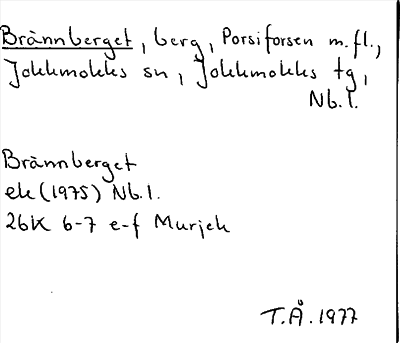 Brännberget, berg, Porsiforsen m.fl.,
Jokkmokks sn, Jokkmokks tg,
Nb.l.
Brännberget
ek (1975) Nb.l.
26K 6-7 e-f Murjek
T.Å. 1977